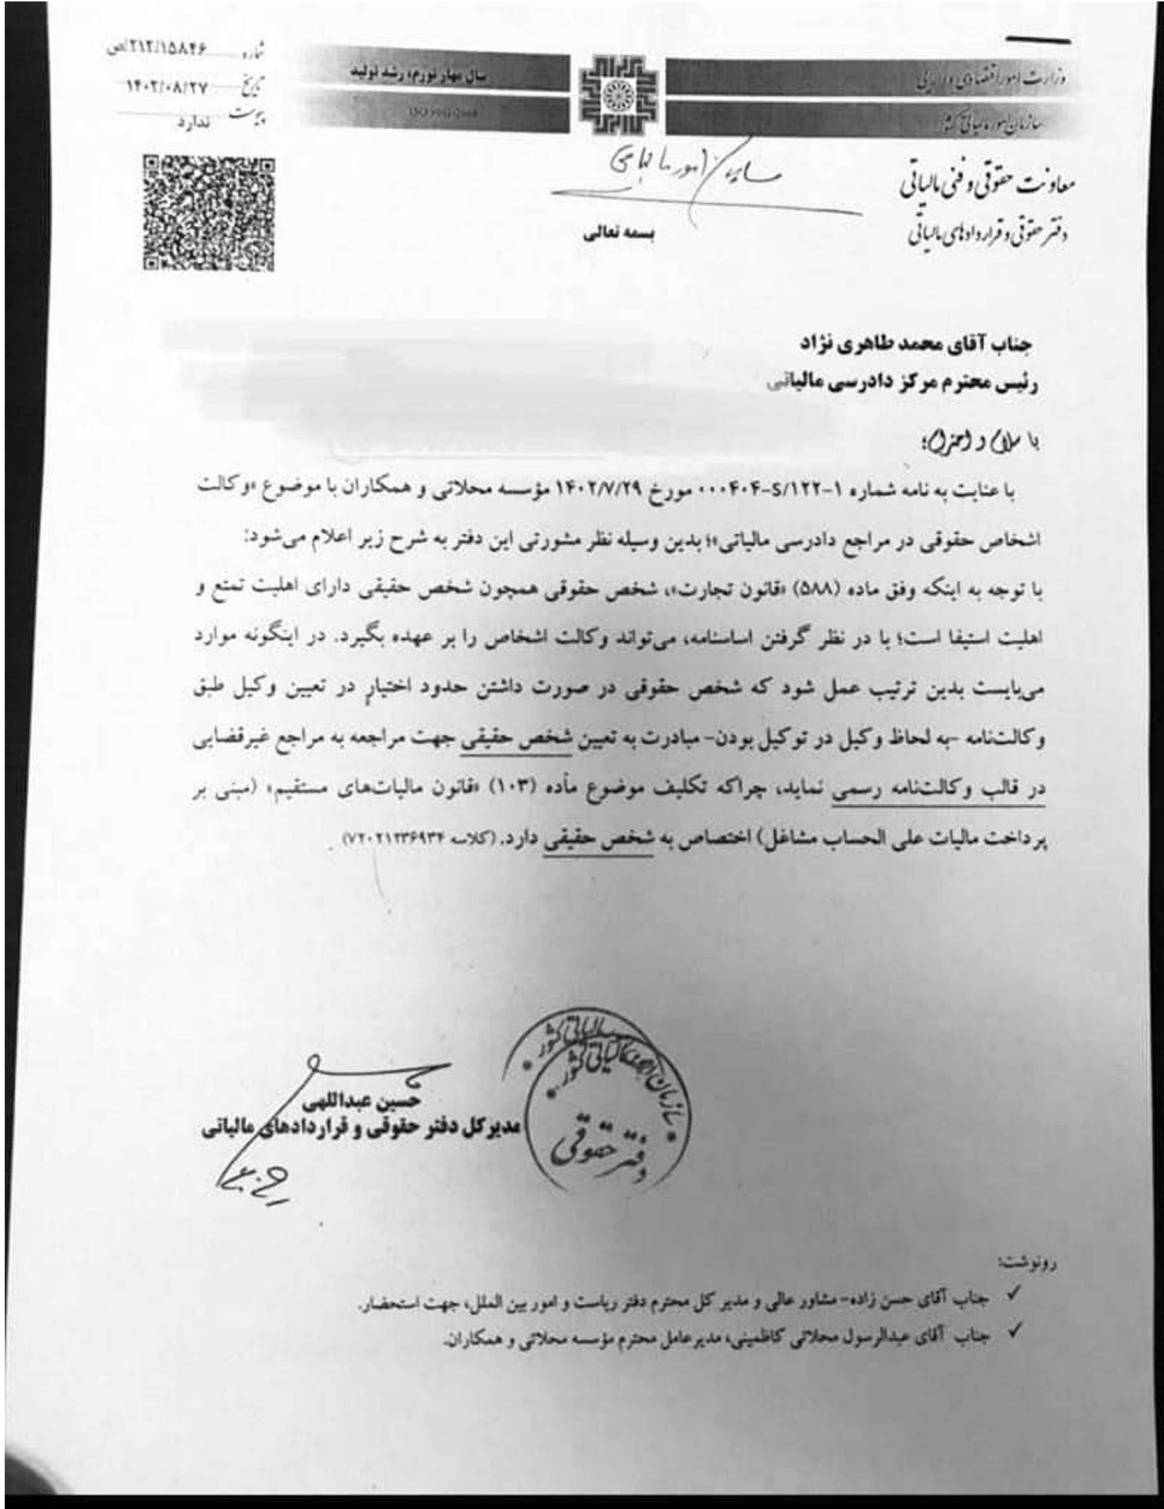 وزارت امور اقتصادی و دارایی
سازمان امور مالیاتی کشور
سال مهار تورم، رشد تولید
شماره ۲۱۲/۱۵۸۴۶/ص
تاریخ ۱۴۰۲/۰۸/۲۷
پیوست ندارد
معاونت حقوقی و فنی مالیاتی
دفتر حقوقی و قراردادهای مالیاتی
بسمه تعالی
جناب آقای محمد طاهری نژاد
رئیس محترم مرکز دادرسی مالیاتی
با سلام و احترام؛
با عنایت به نامه شماره ۱-۱۲۲/S-۰۰۰۴۰۴ مورخ ۱۴۰۲/۷/۲۹ مؤسسه محلاتی و همکاران با موضوع «وکالت
اشخاص حقوقی در مراجع دادرسی مالیاتی»؛ بدین وسیله نظر مشورتی این دفتر به شرح زیر اعلام می‌شود:
با توجه به اینکه وفق ماده (۵۸۸) «قانون تجارت»، شخص حقوقی همچون شخص حقیقی دارای اهلیت تمتع و
اهلیت استیفا است؛ با در نظر گرفتن اساسنامه، می‌تواند وکالت اشخاص را بر عهده بگیرد. در اینگونه موارد
می‌بایست بدین ترتیب عمل شود که شخص حقوقی در صورت داشتن حدود اختیار در تعیین وکیل طبق
وکالت‌نامه -به لحاظ وکیل در توکیل بودن- مبادرت به تعیین شخص حقیقی جهت مراجعه به مراجع غیرقضایی
در قالب وکالت‌نامه رسمی نماید، چراکه تکلیف موضوع ماده (۱۰۳) «قانون مالیات‌های مستقیم» (مبنی بر
پرداخت مالیات علی الحساب مشاغل) اختصاص به شخص حقیقی دارد. (کلاسه ۷۲۰۲۱۲۳۶۹۳۴)
سازمان امور مالیاتی کشور
دفتر حقوقی
حسین عبداللهی
مدیرکل دفتر حقوقی و قراردادهای مالیاتی
رونوشت:
✓ جناب آقای حسن زاده- مشاور عالی و مدیر کل محترم دفتر ریاست و امور بین الملل، جهت استحضار.
✓ جناب آقای عبدالرسول محلاتی کاظمینی، مدیرعامل محترم مؤسسه محلاتی و همکاران.